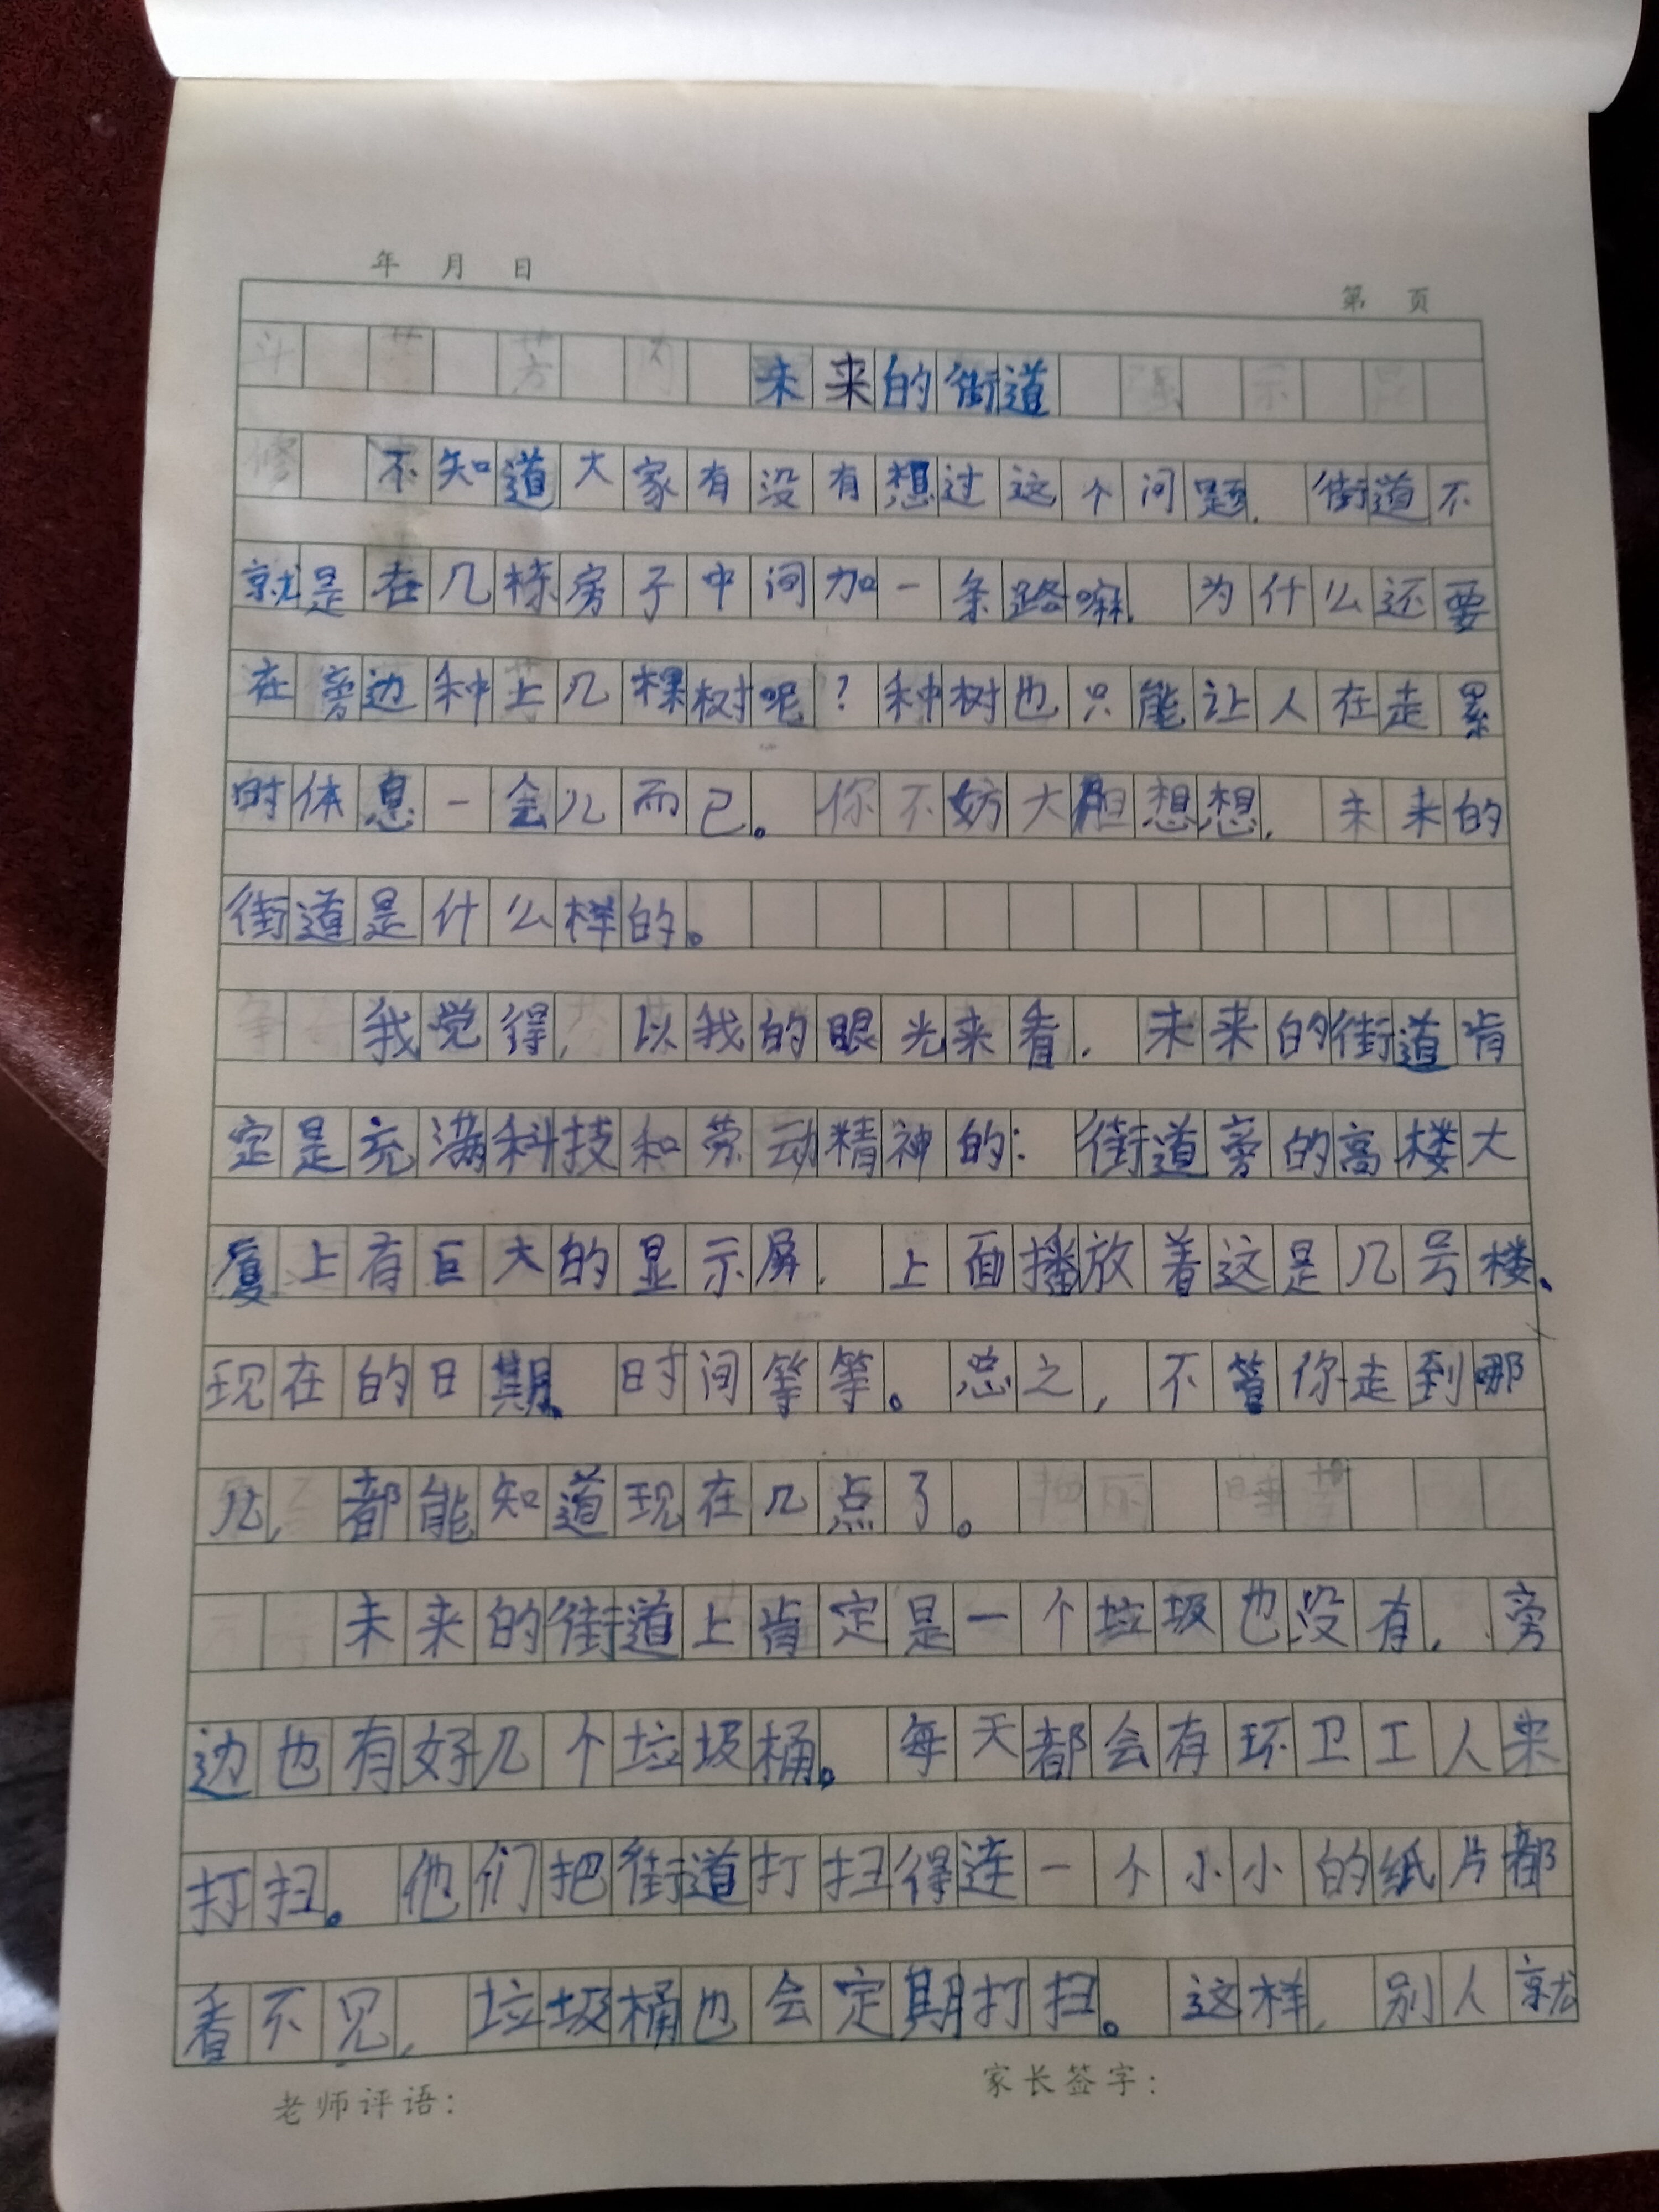 年 月 日
第 页
未来的街道
不知道大家有没有想过这个问题,街道不
就是在几栋房子中间加一条路嘛,为什么还要
在旁边种上几棵树呢?种树也只能让人在走累
时休息一会儿而已。你不妨大胆想想,未来的
街道是什么样的。
我觉得,以我的眼光来看,未来的街道肯
定是充满科技和劳动精神的:街道旁的高楼大
厦上有巨大的显示屏,上面播放着这是几号楼、
现在的日期、时间等等。总之,不管你走到哪
儿,都能知道现在几点了。
未来的街道上肯定是一个垃圾也没有,旁
边也有好几个垃圾桶。每天都会有环卫工人来
打扫。他们把街道打扫得连一个小小的纸片都
看不见,垃圾桶也会定期打扫。这样,别人就
老师评语:
家长签字: